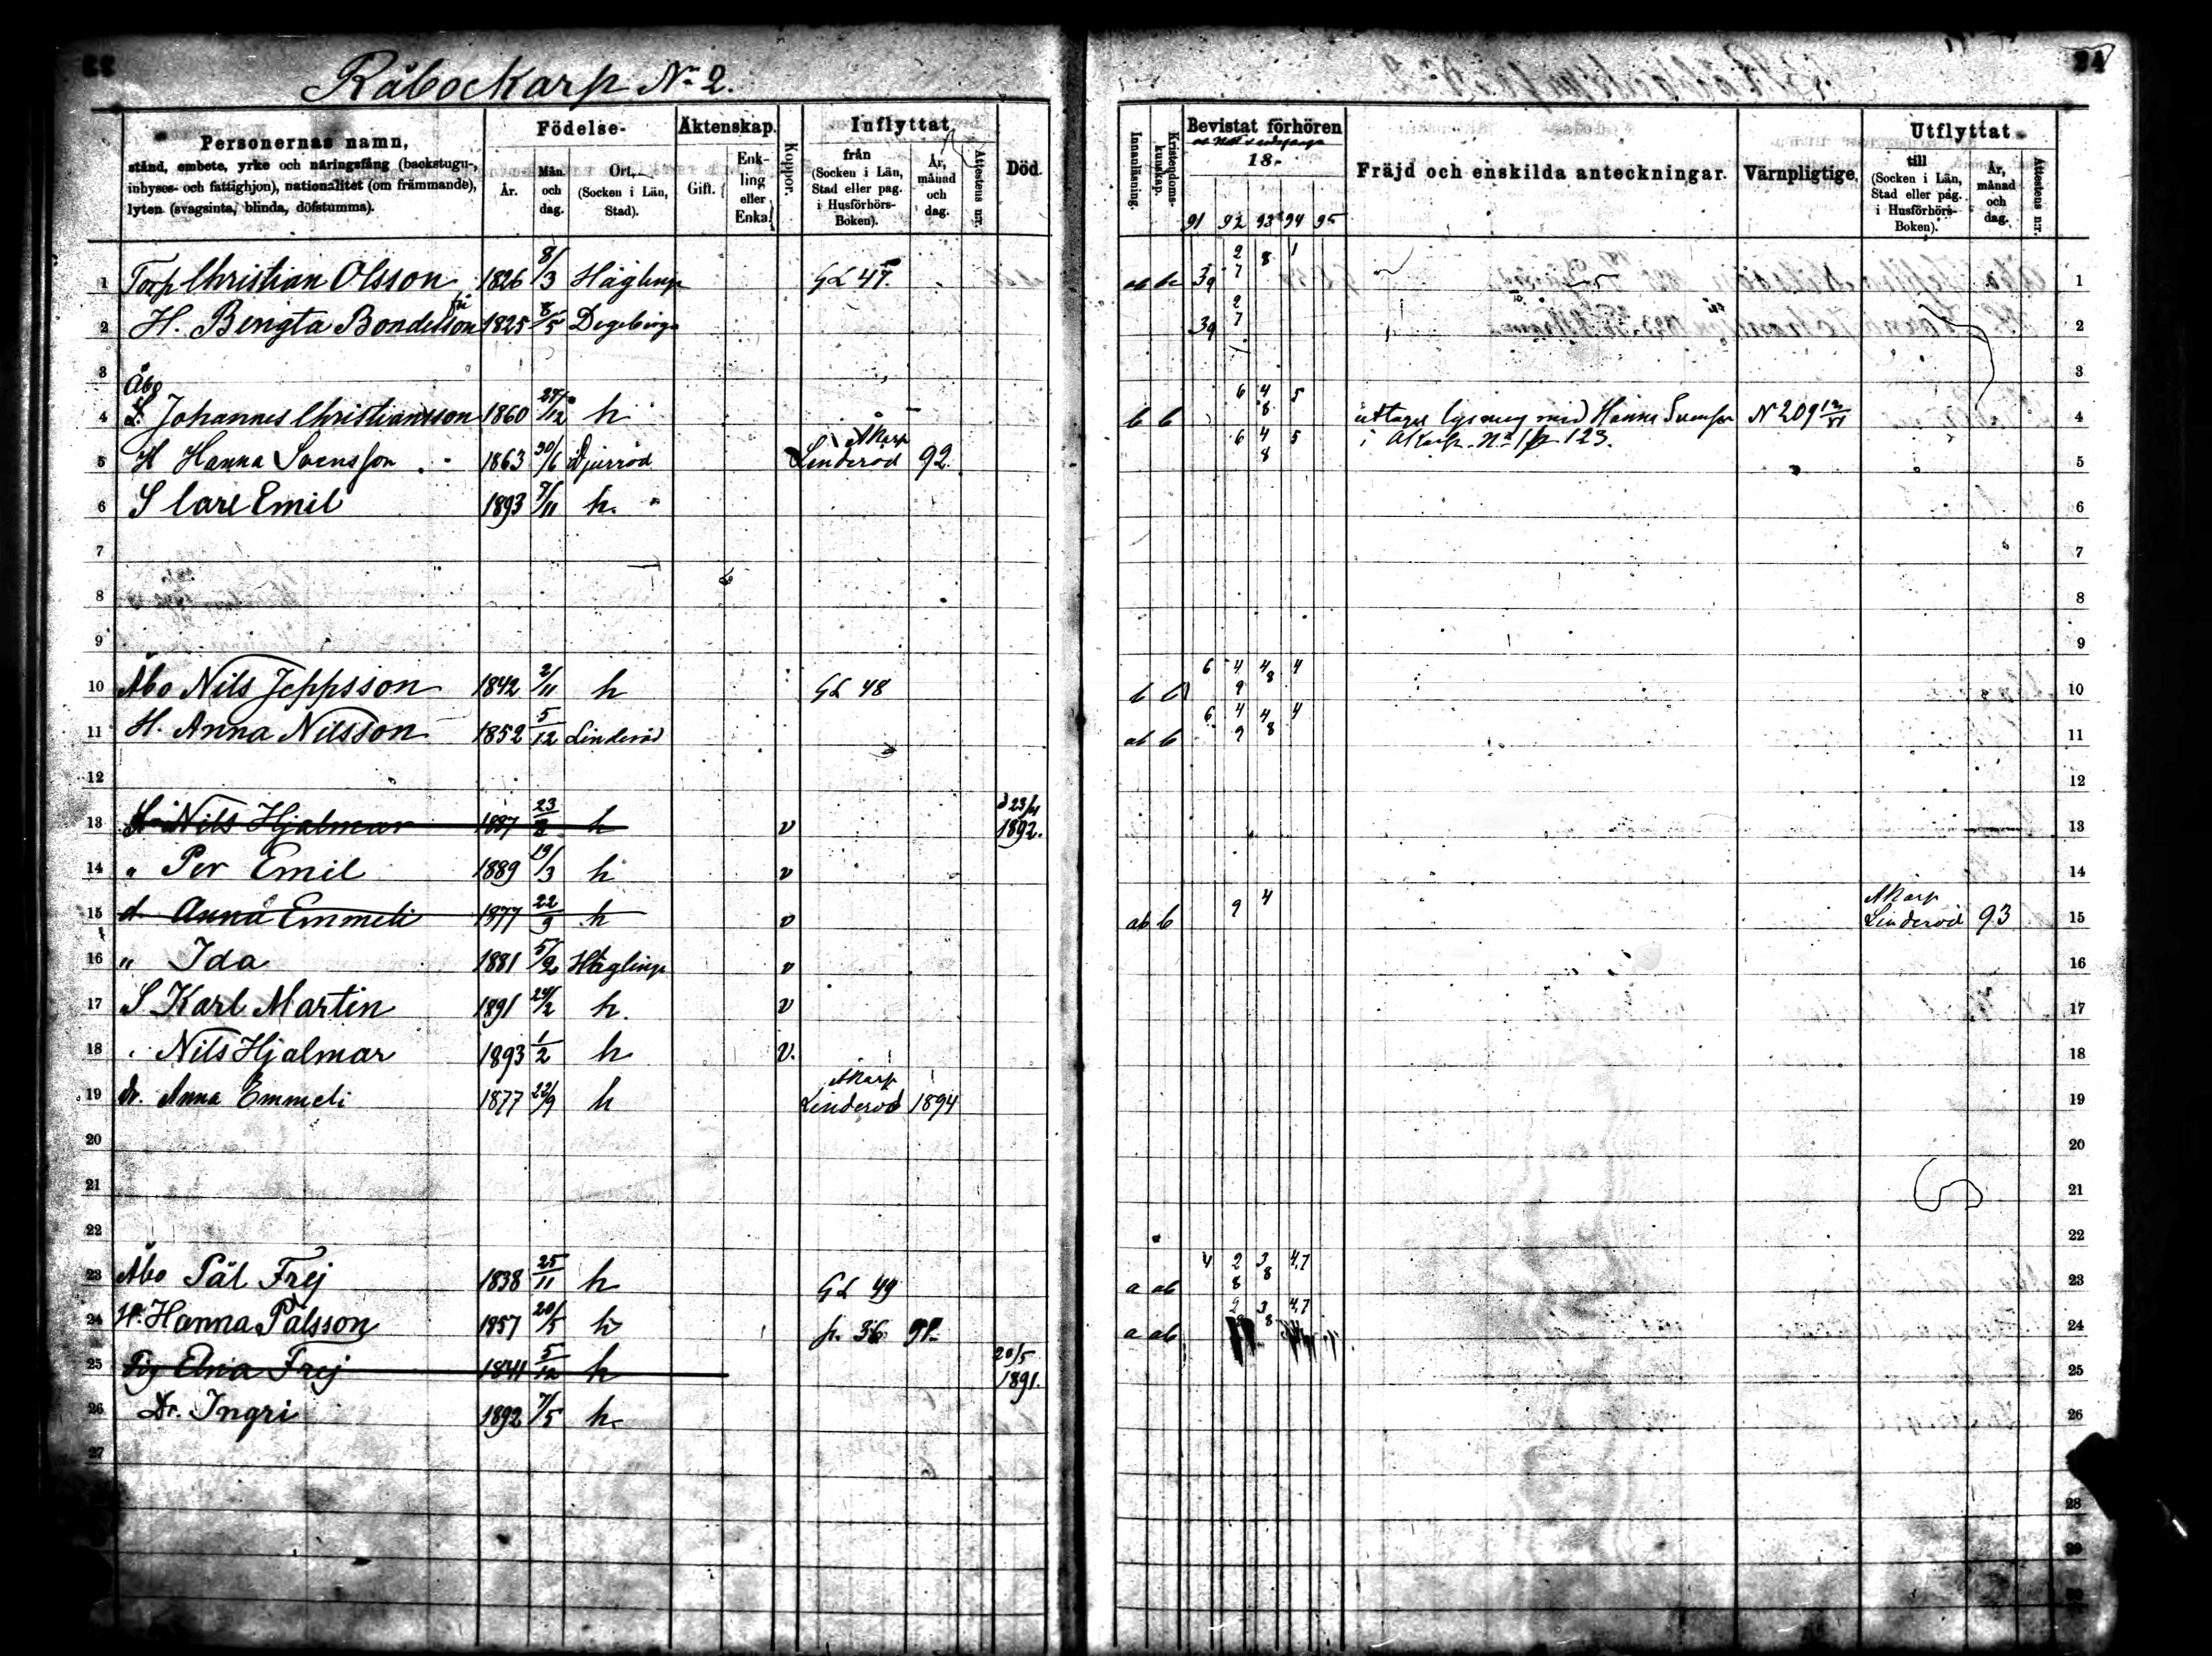 24
Råbockarp No 2.
Personernas namn,
stånd, embete, yrke och näringsfång (backstugu-,
inhyses- och fattighjon), nationalitet (om främmande),
lyten (svagsinta, blinda, döfstumma).
Födelse-
År.
Mån. och dag.
Ort, (Socken i Län, Stad).
Äktenskap.
Gift.
Enkling eller Enka.
Koppor.
Inflyttat
från (Socken i Län, Stad eller pag. i Husförhörs-Boken).
År, månad och dag.
Attestens nr.
Död.
Innanläsning.
Kristendomskunskap.
Bevistat förhören
18-
91 92 93 94 95
Fräjd och enskilda anteckningar.
Värnpligtige.
Utflyttat
till (Socken i Län, Stad eller pag. i Husförhörs-Boken).
År, månad och dag.
Attestens nr.
1 Torp Christian Olsson 1826 8/3 Häglinge GL 47. 39 2 7 8 1 1
2 H. Bengta Bondesson 1825 8/5 Degeberga 39 2 7 2
3 3
Åbo
4 S. Johannes Christiansson 1860 27/12 h b b 6 4 8 5 uttagit lysning med Hanna Svensson N 209 4
i AKarp N:o 1 p. 123.
5 H Hanna Svensson 1863 30/6 Djurröd AKarp Linderöd 92. 6 4 8 5 5
6 S Carl Emil 1893 7/11 h. 6
7 7
8 8
9 9
10 Åbo Nils Jeppsson 1842 2/11 h GL 48 b b 6 4 9 4 8 4 10
11 H. Anna Nilsson 1852 5/12 Linderöd ab b 6 4 9 4 8 4 11
12 12
13 S. Nils Hjalmar 1887 23 h v 1892. 13
14 " Per Emil 1889 19/3 h v 14
15 d. Anna Emmeli 1877 22/9 h v ab b 9 4 AKarp Linderöd 93 15
16 " Ida 1881 5/2 Häglinge v 16
17 S Karl Martin 1891 24/2 h. v 17
18 " Nils Hjalmar 1893 1/2 h v. 18
19 dr. Anna Emmeli 1877 22/9 h AKarp Linderöd 1894 19
20 20
21 21
22 22
23 Åbo Pål Frej 1838 25/11 h GL 49 a ab 4 2 8 3 8 4.7 23
24 H. Hanna Pålsson 1857 20/5 h p. 36 91. a ab 2 3 8 4.7 24
25 Pig Elna Frej 1841 5/12 h 20/5 1891. 25
26 Dr. Ingri 1892 7/5 h. 26
27
28
29